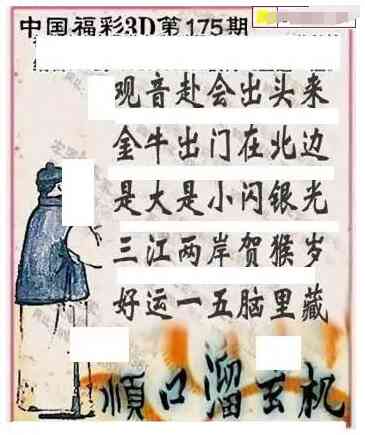 中国福彩3D第175期
观音赴会出头来
金牛出门在北边
是大是小闪银光
三江两岸贺猴岁
好运一五脑里藏
顺口溜玄机